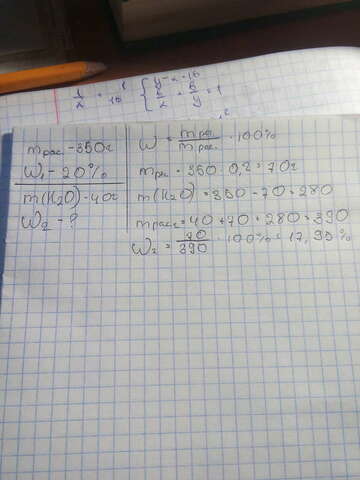 1/2 = 1/10
{ y-x=16
5/x = 5/y = 1
mрас. - 350г
W₁ - 20%
m(H₂O) - 40г
W₂ - ?
W = mрв./mрас. · 100%
mрв = 350 · 0,2 = 70г
m(H₂O) = 350 - 70 = 280
mрас₂ = 40 + 70 + 280 = 390
W₂ = 70/390 · 100% = 17,95%